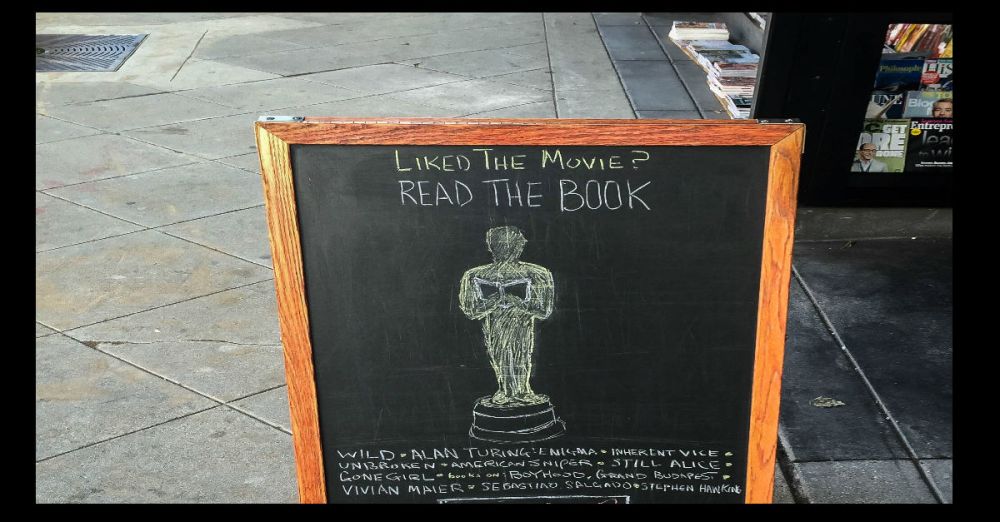 LIKED THE MOVIE?
READ THE BOOK
WILD • ALAN TURING: ENIGMA • INHERENT VICE •
UNBROKEN • AMERICAN SNIPER • STILL ALICE •
GONE GIRL • books on: BOYHOOD, GRAND BUDAPEST •
VIVIAN MAIER • SEBASTIAO SALGADO • STEPHEN HAWKING
Philosophie
Bloo
GET
Entrepre